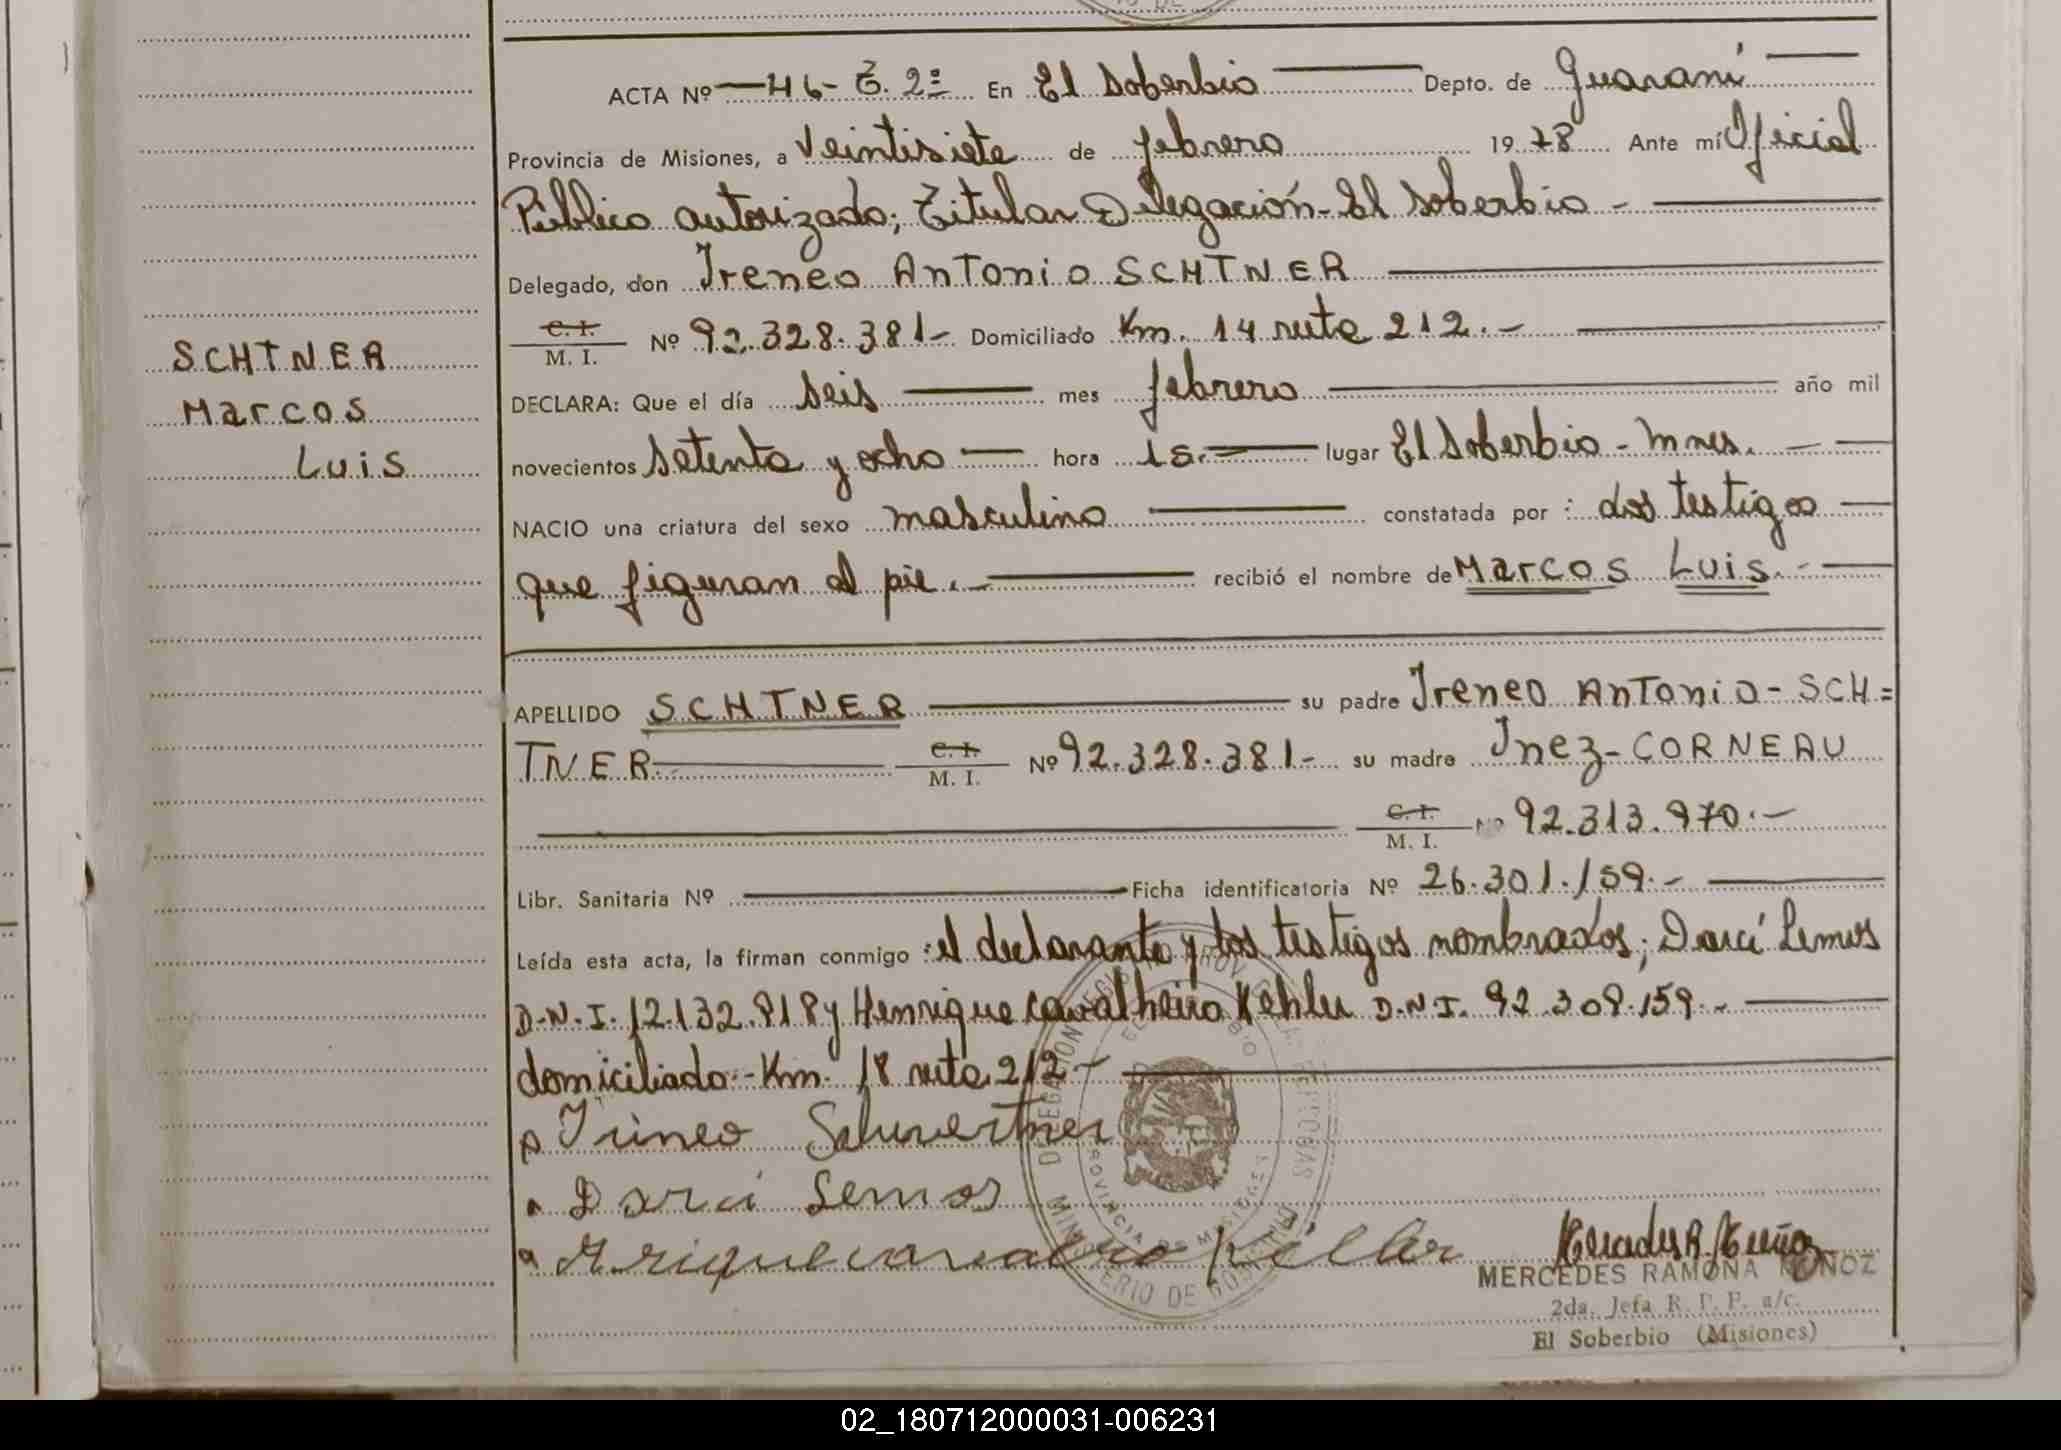 ACTA Nº 46- T. 2º En El Soberbio Depto. de Guaraní
Provincia de Misiones, a Veintisiete de febrero 1978 Ante mí Oficial
Público autorizado; Titular Delegación - El Soberbio -
Delegado, don Ireneo Antonio SCHTNER
C. I.
M. I. Nº 92.328.381- Domiciliado Km. 14 ruta 212.-
SCHTNER
Marcos
Luis
DECLARA: Que el día seis mes febrero año mil
novecientos setenta y ocho hora 15.- lugar El Soberbio - Mnes.
NACIO una criatura del sexo masculino constatada por : dos testigos
que figuran al pie.- recibió el nombre de Marcos Luis.-
APELLIDO SCHTNER su padre Ireneo Antonio - SCH=
TNER.- C. I. M. I. Nº 92.328.381- su madre Inez - CORNEAU
C. I. M. I. Nº 92.313.970.-
Libr. Sanitaria Nº Ficha identificatoria Nº 26.301.159.-
Leída esta acta, la firman conmigo : el declarante y los testigos nombrados; Darcí Lemos
D.N.I. 12.132.818 y Henrique Cavalheiro Kehler D.N.I. 92.309.159.-
domiciliado - Km. 18 ruta 212 -
Irineo Schwertner
Darci Lemos
MERCEDES RAMONA MUÑOZ
2da. Jefa R. P. P. a/c.
El Soberbio (Misiones)
02_180712000031-006231